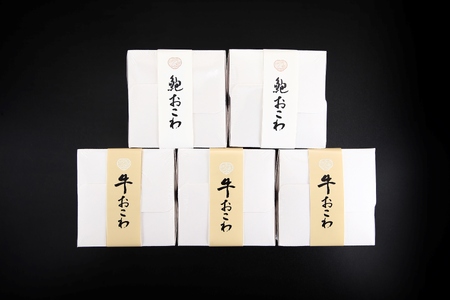 鮑おこわ
鮑おこわ
牛おこわ
牛おこわ
牛おこわ